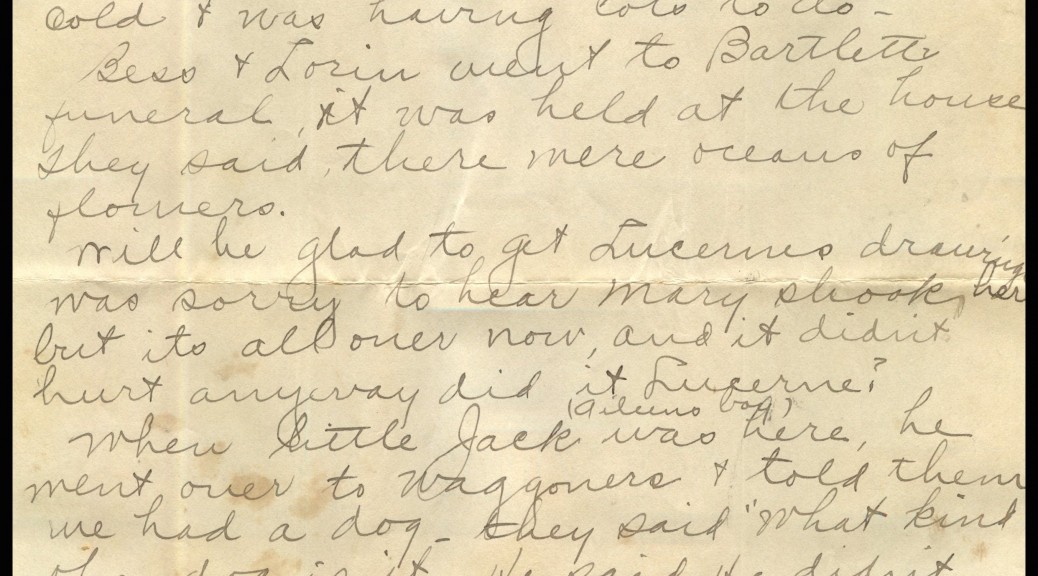 cold & was having lots to do -
Bess & Lorin went to Bartletts
funeral, it was held at the house
they said, there were oceans of
flowers.
Will be glad to get Lucernes drawing
was sorry to hear Mary shook her
but its all over now, and it didn't
hurt anyway did it Lucerne?
(Aileens boy)
When little Jack was here, he
went over to Waggoners & told them
we had a dog - they said "What kind
of a dog is it. He said He didn't